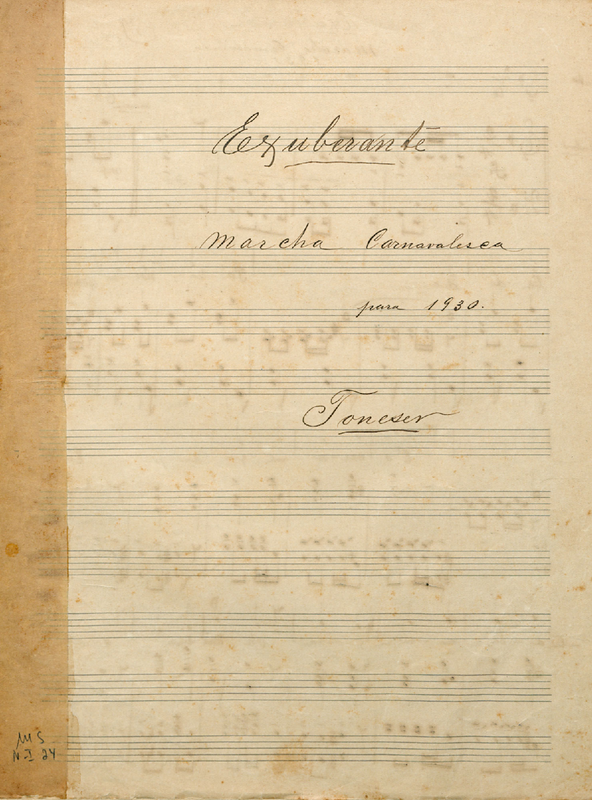 Exuberante
Marcha Carnavalesca
para 1930.
Toneser
MS
N-I 24